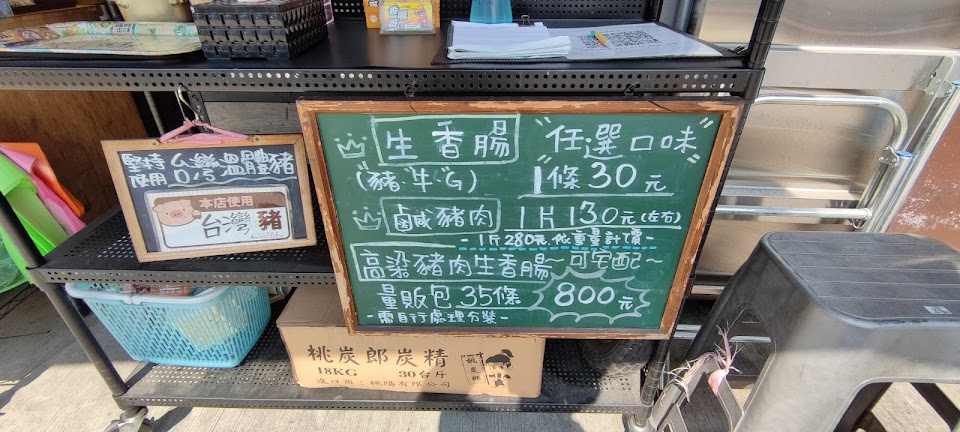 堅持使用台灣溫體豬
本店使用
台灣豬
生香腸 "任選口味"
(豬.牛.G) 1條30元
鹹豬肉 1片130元(左右)
-1斤280元.依重量計價-
高梁豬肉生香腸~可宅配~
量販包35條 800元
-需自行處理分裝-
桃炭郎炭精
18KG 30台斤
進口商:桃陽有限公司
桃炭郎